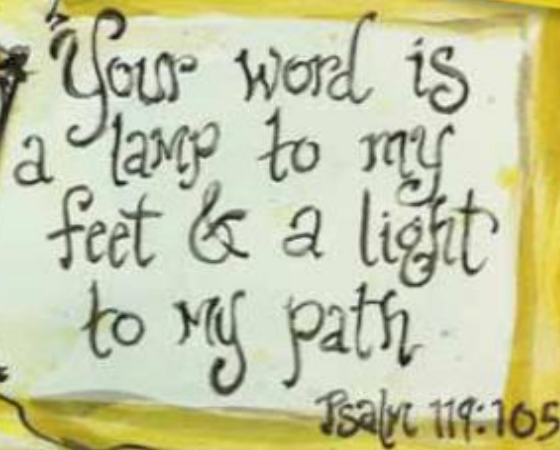 Your word is
a lamp to my
feet & a light
to my path
Psalm 119:105